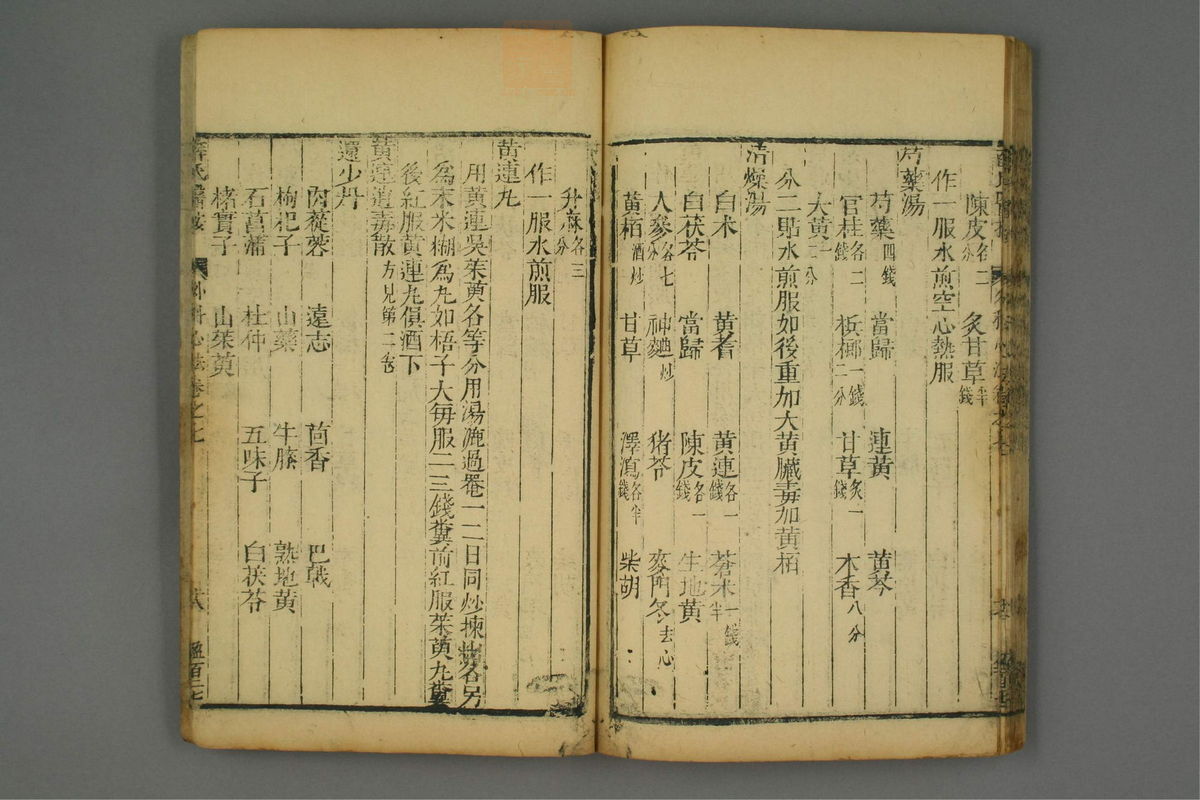 陳皮各二分 炙甘草半錢
作一服水煎空心熱服
芍藥湯
芍藥四錢 當歸 連黃 黃芩
官桂各二錢 梹榔一錢二分 甘草炙一錢 木香八分
大黃一錢二分
分二貼水煎服如後重加大黃臟毒加黃栢
清燥湯
白术 黃耆 黃連各一錢 蒼术一錢半
白茯苓 當歸 陳皮各一錢 生地黃
人參各七分 神麯炒 猪苓 麥門冬去心
黃栢酒炒 甘草 澤瀉各半錢 柴胡
升麻各三分
作一服水煎服
黃連丸
用黃連吳茱萸各等分用湯漉過罨一二日同炒揀出各另
爲末米糊爲丸如梧子大每服二三錢糞前紅服茱萸丸糞
後紅服黃連丸俱酒下
黃連消毒散方見第二卷
還少丹
肉蓯蓉 遠志 茴香 巴戟
枸杞子 山藥 牛膝 熟地黃
石菖蒲 杜仲 五味子 白茯苓
楮實子 山茱萸
薛氏醫按 外科心法卷之七 十八 盈百二七